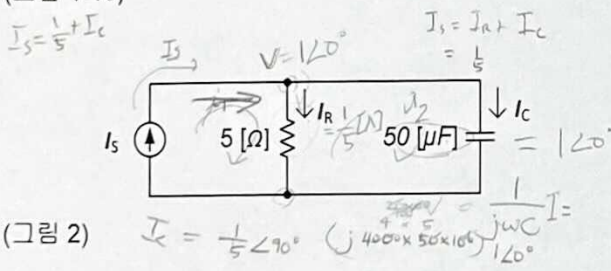 I_S = 1/5 + I_C
I_S = I_R + I_C
= 1/5
I_S
V = 1∠0°
I_S
5 [Ω]
I_R
= 1/5 [A]
50 [μF]
I_C
= 1∠0°
(그림 2)
I_C = 1/5 ∠90°
(j 4000 × 50×10⁻⁶)
1/jωC I =
1∠0°